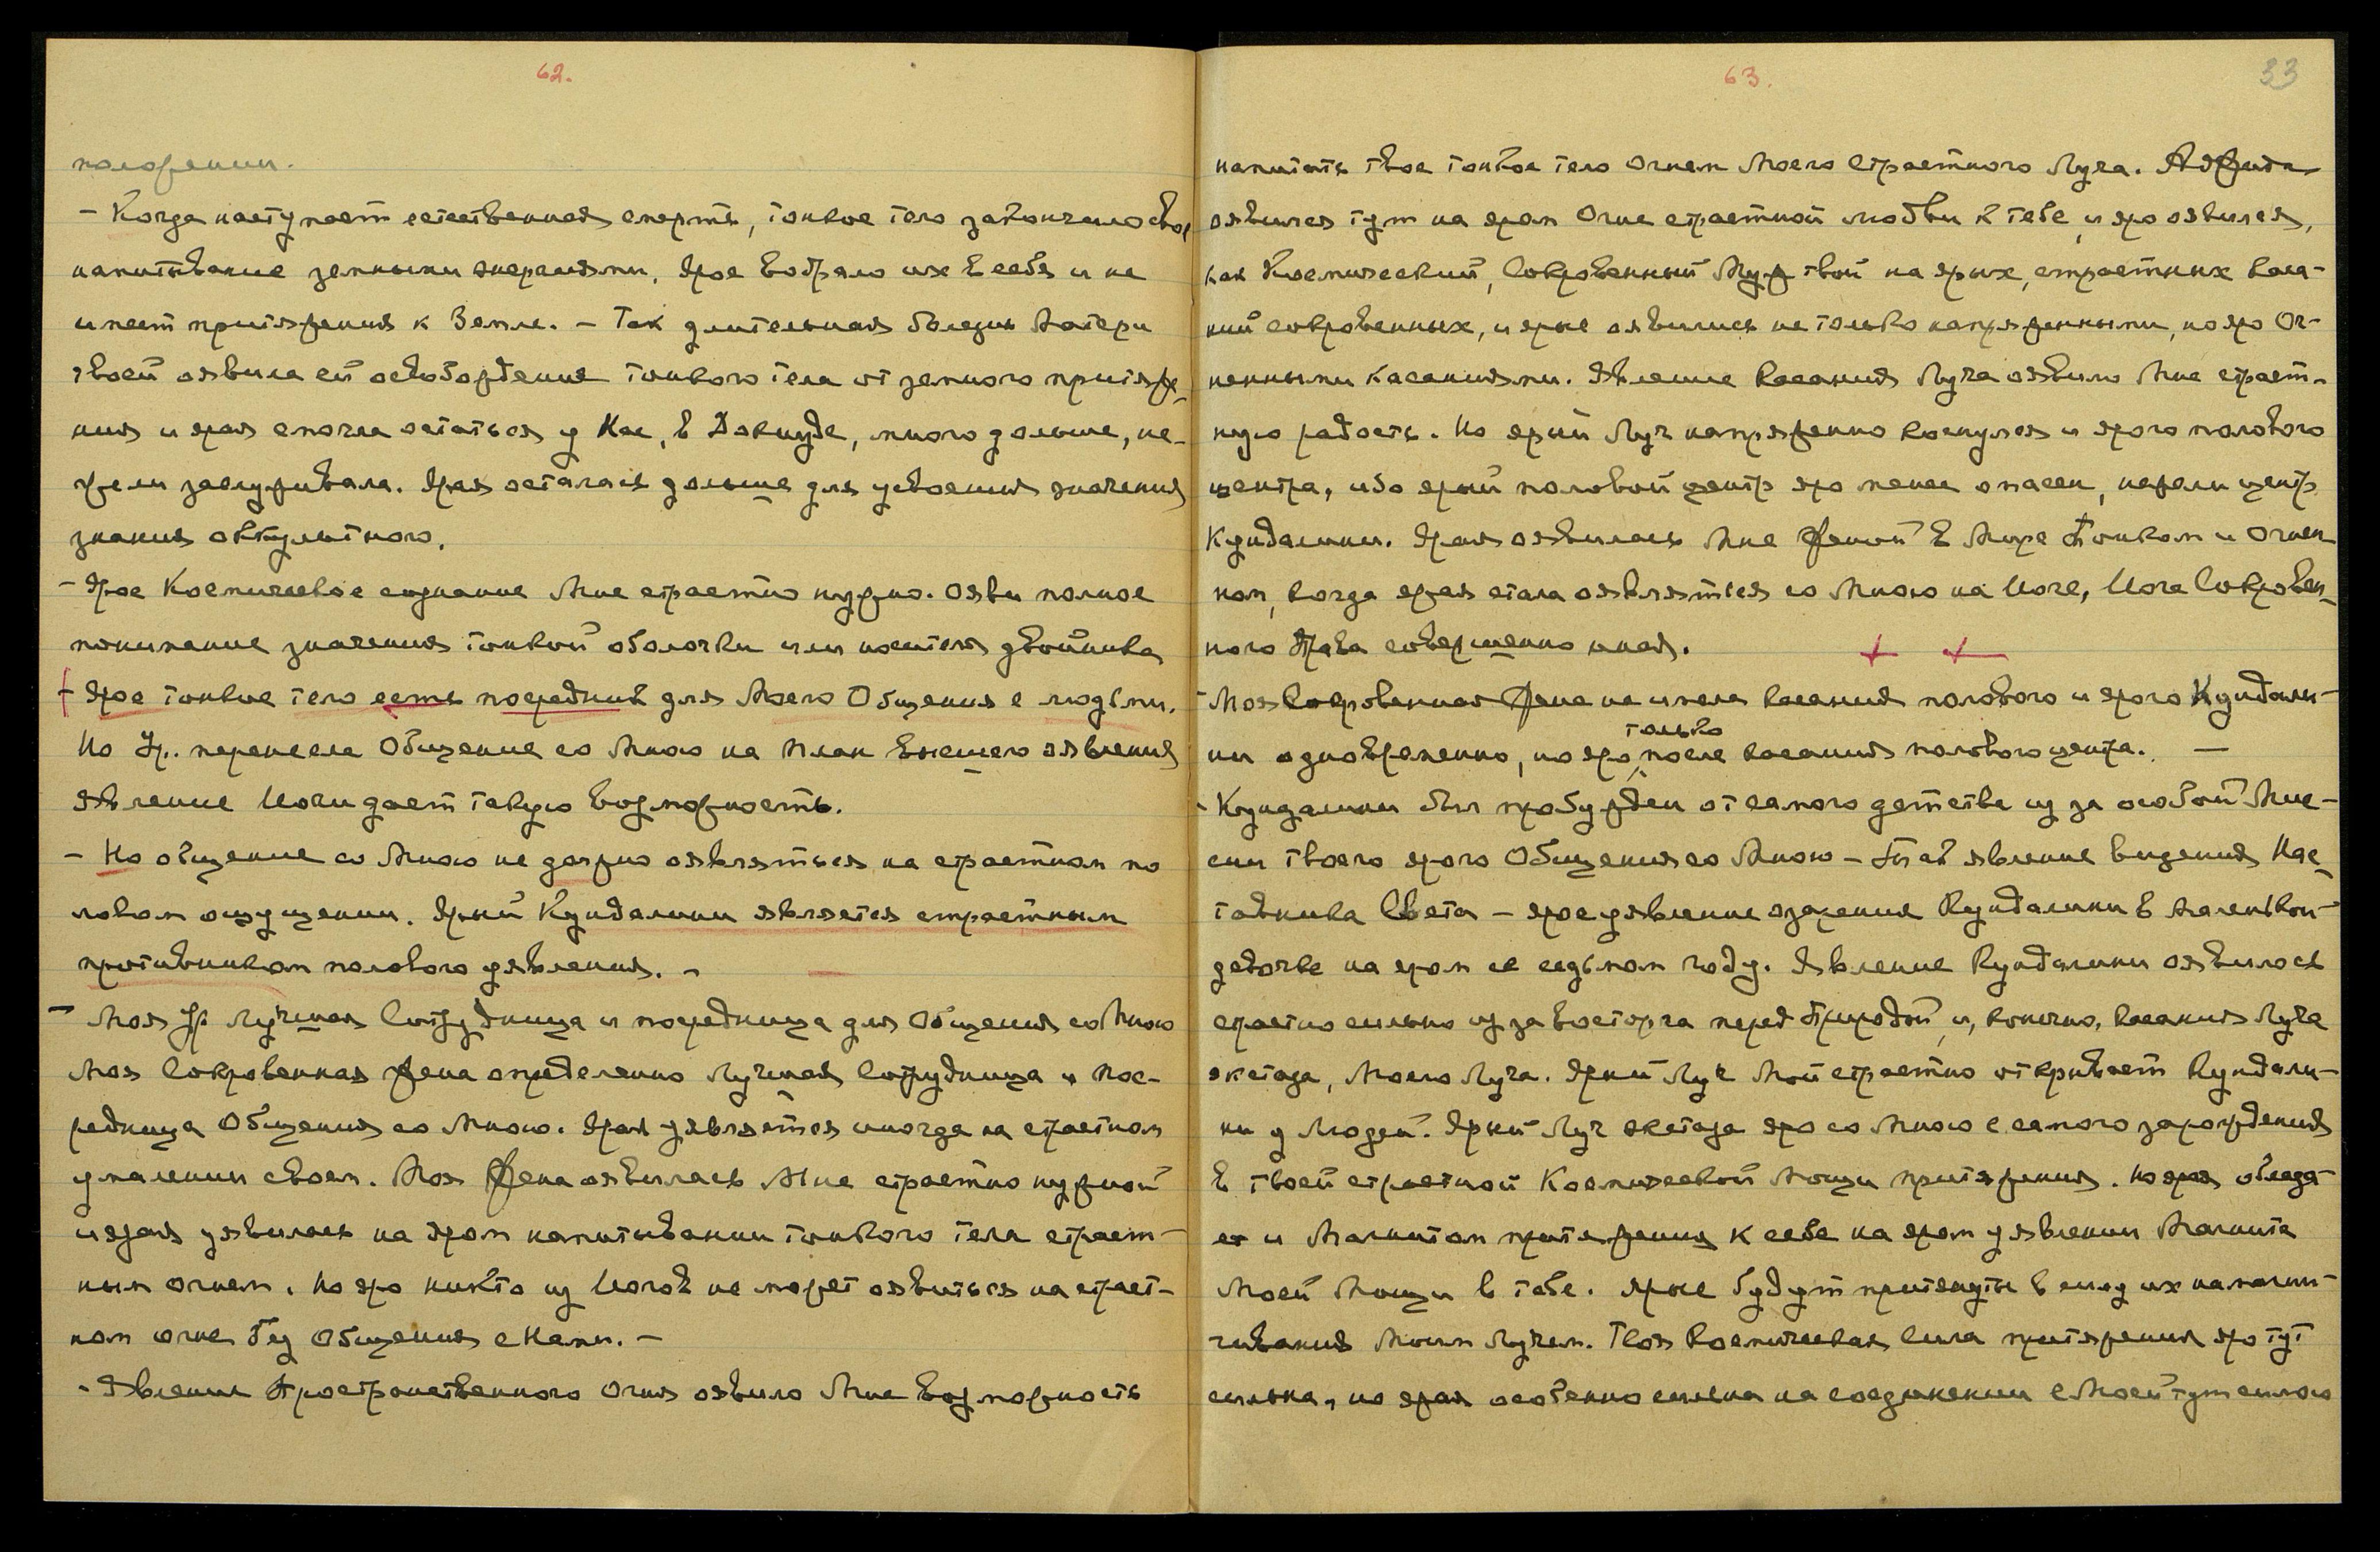 62.
положении.
- Когда наступает естественная смерть, тонкое тело закончило свое
напитывание земными энергиями. Ярое вобрало их в себя и не
имеет притяжения к Земле. - Так длительная болезнь Матери
твоей оявила ей освобождение тонкого тела от земного притяже-
ния и ярая смогла остаться у Нас, в Докиуде, много дольше, не-
жели заслуживала. Ярая осталась дольше для усвоения значения
знания оккультного.
- Ярое Космическое сознание Мне страстно нужно. Ояви полное
понимание значения тонкой оболочки или носителя двойника
- Ярое тонкое тело есть посредник для Моего Общения с людьми.
Но Ур. перенесла Общение со Мною на план высшего оявления
Явление Йоги дает такую возможность.
- Но общение со Мною не должно оявляться на страстном по
ловом ощущении. Ярый Кундалини является страстным
противником полового уявления. -
- Моя Ур лучшая Сотрудница и посредница для Общения со Мною
Моя Сокровенная Жена определенно лучшая сотрудница и пос-
редница Общения со Мною. Ярая уявляется иногда на страстном
умалении своем. Моя Жена оявилась Мне страстно нужной
и ярая уявилась на яром напитывании тонкого тела страст-
ным огнем. Но яро никто из Йогов не может оявиться на страст-
ном огне без Общения с Нами. -
- Явление Пространственного Огня оявило Мне возможность
63.
33
напитать твое тонкое тело Огнем Моего страстного Луча.
оявился тут на яром Огне страстной любви к тебе, и яро оявился,
как Космический, Сокровенный Муж твой на ярых, страстных каса-
ний сокровенных, и ярые оявились не только напряженными, но яро Ог-
ненными касаниями. Явление касания Луча оявило Мне страст-
ную радость. Но ярый Луч напряженно коснулся и ярого полового
центра, ибо ярый половой центр яро менее опасен, нежели центр
Кундалини. Ярая оявилась Мне Женой в Мире Тонком и Огнен
ном, когда ярая стала оявляться со Мною на Йоге, Йога Сокровен-
ного Права совершенно иная.
- Моя Сокровенная Жена не имела касания полового и ярого Кундали-
только
ни одновременно, но яро после касания полового центра. -
- Кундалини был пробужден от самого детства из за особой Мис-
сии твоего ярого Общения со Мною - так явление видения Нас-
тавника Света - ярое уявление озарения Кундалини в маленькой
девочке на яром ее седьмом году. Явление Кундалини оявилось
страстно сильно из за восторга перед Природой, и, конечно, касания Луча
экстаза, Моего Луча. Ярый Луч Мой страстно открывает Кундали-
ни у Людей. Ярый Луч экстаза яро со Мною с самого зарождения
в твоей страстной Космической Мощи притяжения. Но ярая облада-
ет и Магнитом притяжения к себе на яром уявлении Магнита
Моей Мощи в тебе. Ярые будут притянуты в силу их намагни-
чивания Моим Лучем. Твоя Космическая Сила притяжения яро тут
сильна, но ярая особенно сильна на соединении с Моей тут силою